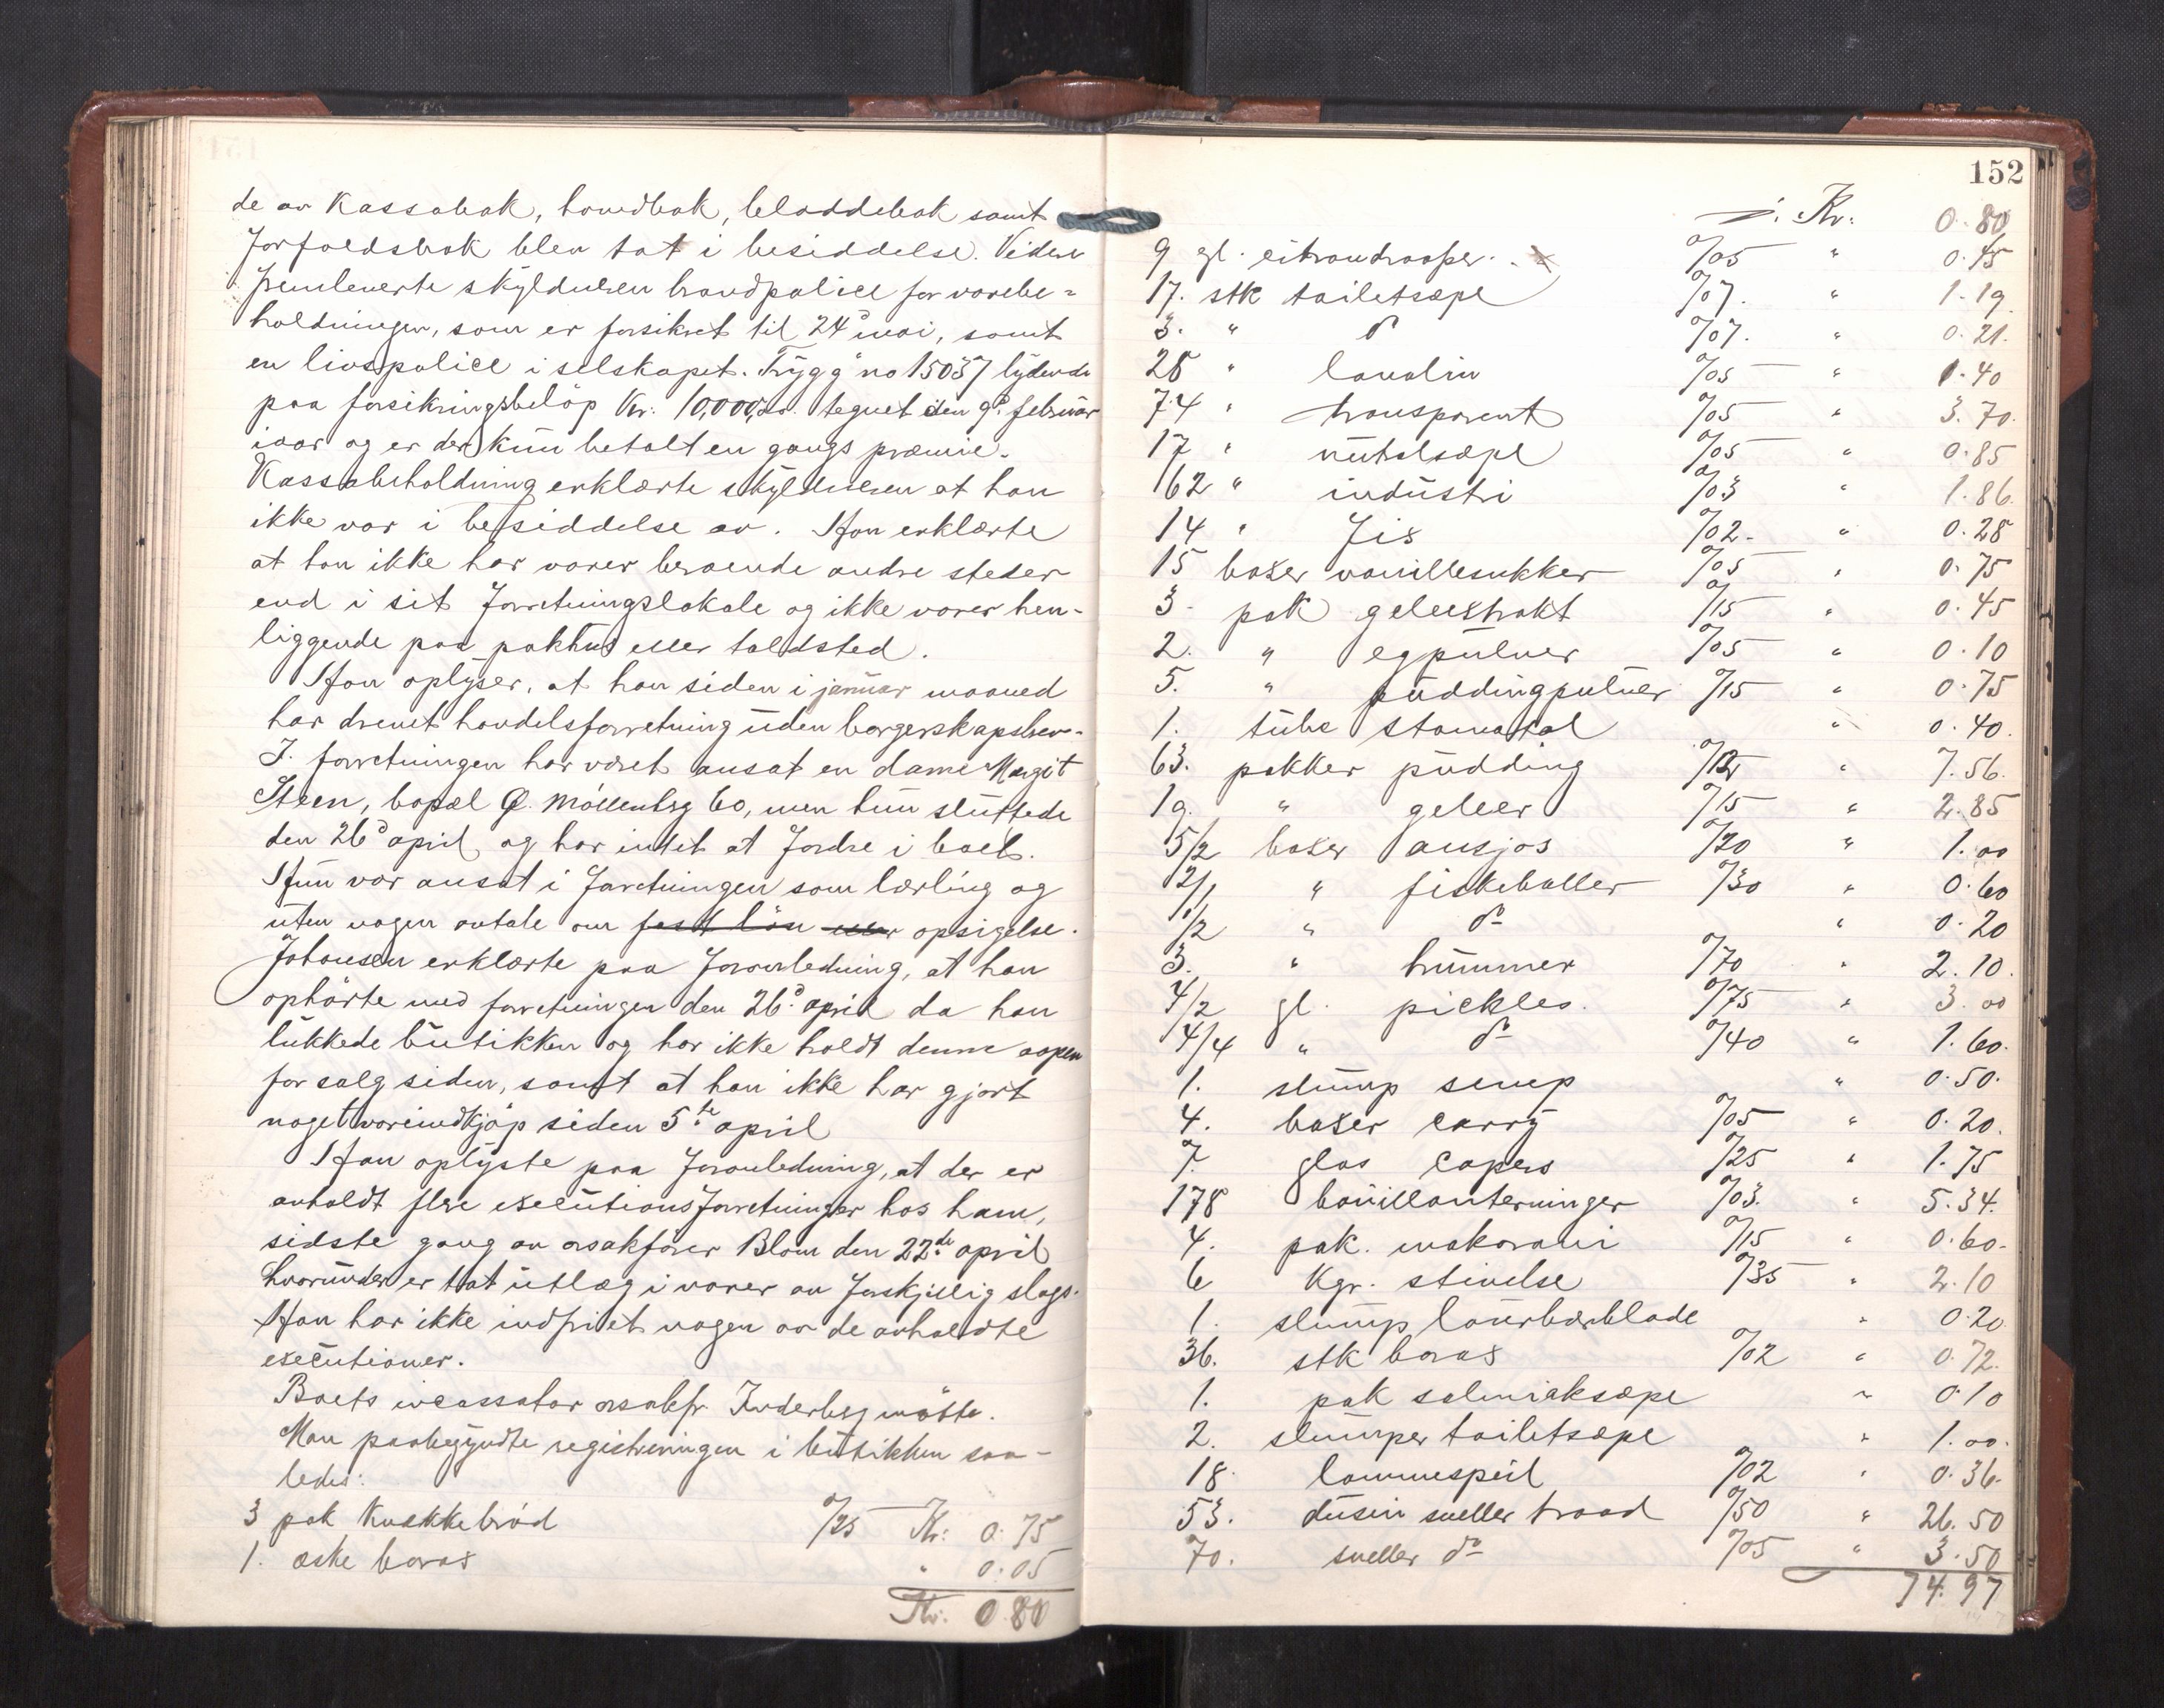 de av Kassabok, hovedbok, kladdebok samt
forfaldsbok blev tat i besiddelse. Videre
fremleverte skyldneren brandpolice for varebe=
holdningen, som er forsikret til 24de mai, samt
en livspolice i selskapet "Trygg" no 15037 lydende
paa forsikringsbeløp Kr. 10,000,00 tegnet den 9de februar
iaar og er der kun betalt en gangs præmie.
Kassabeholdning erklærte skyldneren at han
ikke var i besiddelse av. Han erklærte
at han ikke har varer beroende andre steder
end i sit forretningslokale og ikke varer hen-
liggende paa pakhus eller toldsted.
Han oplyser, at han siden i januar maaned
har drevet handelsforretning uden borgerskapsbrev.
I forretningen har været ansat en dame Margit
Steen, bopæl Ø. Møllenberg 60, men hun sluttede
den 26de april og har intet at fordre i boet.
Hun var ansat i forretningen som lærling og
uten nogen avtale om fast løn eller opsigelse.
Johansen erklærte paa foranledning, at han
ophørte med forretningen den 26de april da han
lukkede butikken og har ikke holdt denne aapen
for salg siden, samt at han ikke har gjort
noget vareindkjøp siden 5te april
Han oplyste paa foranledning, at der er
avholdt flere executionsforretninger hos ham,
sidste gang av osakfører Blom den 22de april
hvorunder er tat utlæg i varer av forskjellig slags.
Han har ikke indfriet nogen av de avholdte
executioner.
Boets incassator osakfr. Inderberg møtte.
Man paabegyndte registreringen i butikken saa-
ledes:
3 pak Knækkebrød 0/25 Kr: 0.75
1. æske borax " 0.05
Kr. 0.80
152
Kr: 0.80
9 gl. citrondraaper 0/05 " 0.45
17. stk toiletsæpe 0/07. " 1.19
3. " do 0/07. " 0.21.
28 " lanolin 0/05 " 1.40
74 " transparent 0/05 " 3.70.
17 " nutolsæpe 0/05 " 0.85
62 " industri 0/03 " 1.86.
14 " Jis 0/02 - " 0.28
15 bokser vanillesukker 0/05 " 0.75
3 - pak geleextrakt 0/15 " 0.45
2. " egpulver 0/05 " 0.10
5. " puddingpulver 0/15 " 0.75
1. tube stomatol " 0.40.
63. pakker pudding 0/12 " 7.56.
19. " geleer 0/15 " 2.85
5/2 bokser ansjos 0/20 " 1.00
2/1 " fiskeboller 0/30 " 0.60
1/2 " do " 0.20
3. " hummer 0/70 " 2.10.
4/2 gl. pickles. 0/75 " 3.00
4/4 " do 0/40 " 1.60.
1. slump sirup " 0.50.
4. bokser carry 0/05 " 0.20.
7. glas capers 0/25 " 1.75
178 bouillonterninger 0/03. " 5.34.
4. pak. makaroni 0/15 " 0.60.
6 Kgr. stivelse 0/35 " 2.10
1. slump laurbærblade " 0.20
36. stk borax 0/02 " 0.72.
1. pak salmiaksæpe " 0.10
2. slumper toiletsæpe " 1.00.
18. lommespeil 0/02 " 0.36.
53. dusin sneller traad 0/50 " 26.50
70. sneller do 0/05 " 3.50
74.97